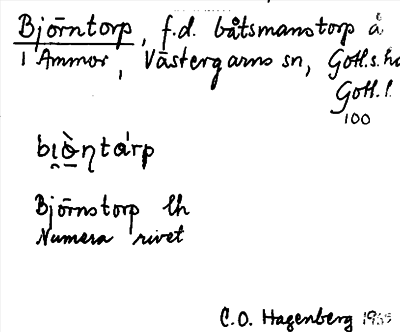 Björntorp, f.d. båtsmanstorp å
1 Ammor, Västergarns sn, Gotl.s. hd
Gotl. l.
100
bι̯ὸ̱ηtárp
Björnstorp lh
Numera rivet
C.O. Hagenberg 1935